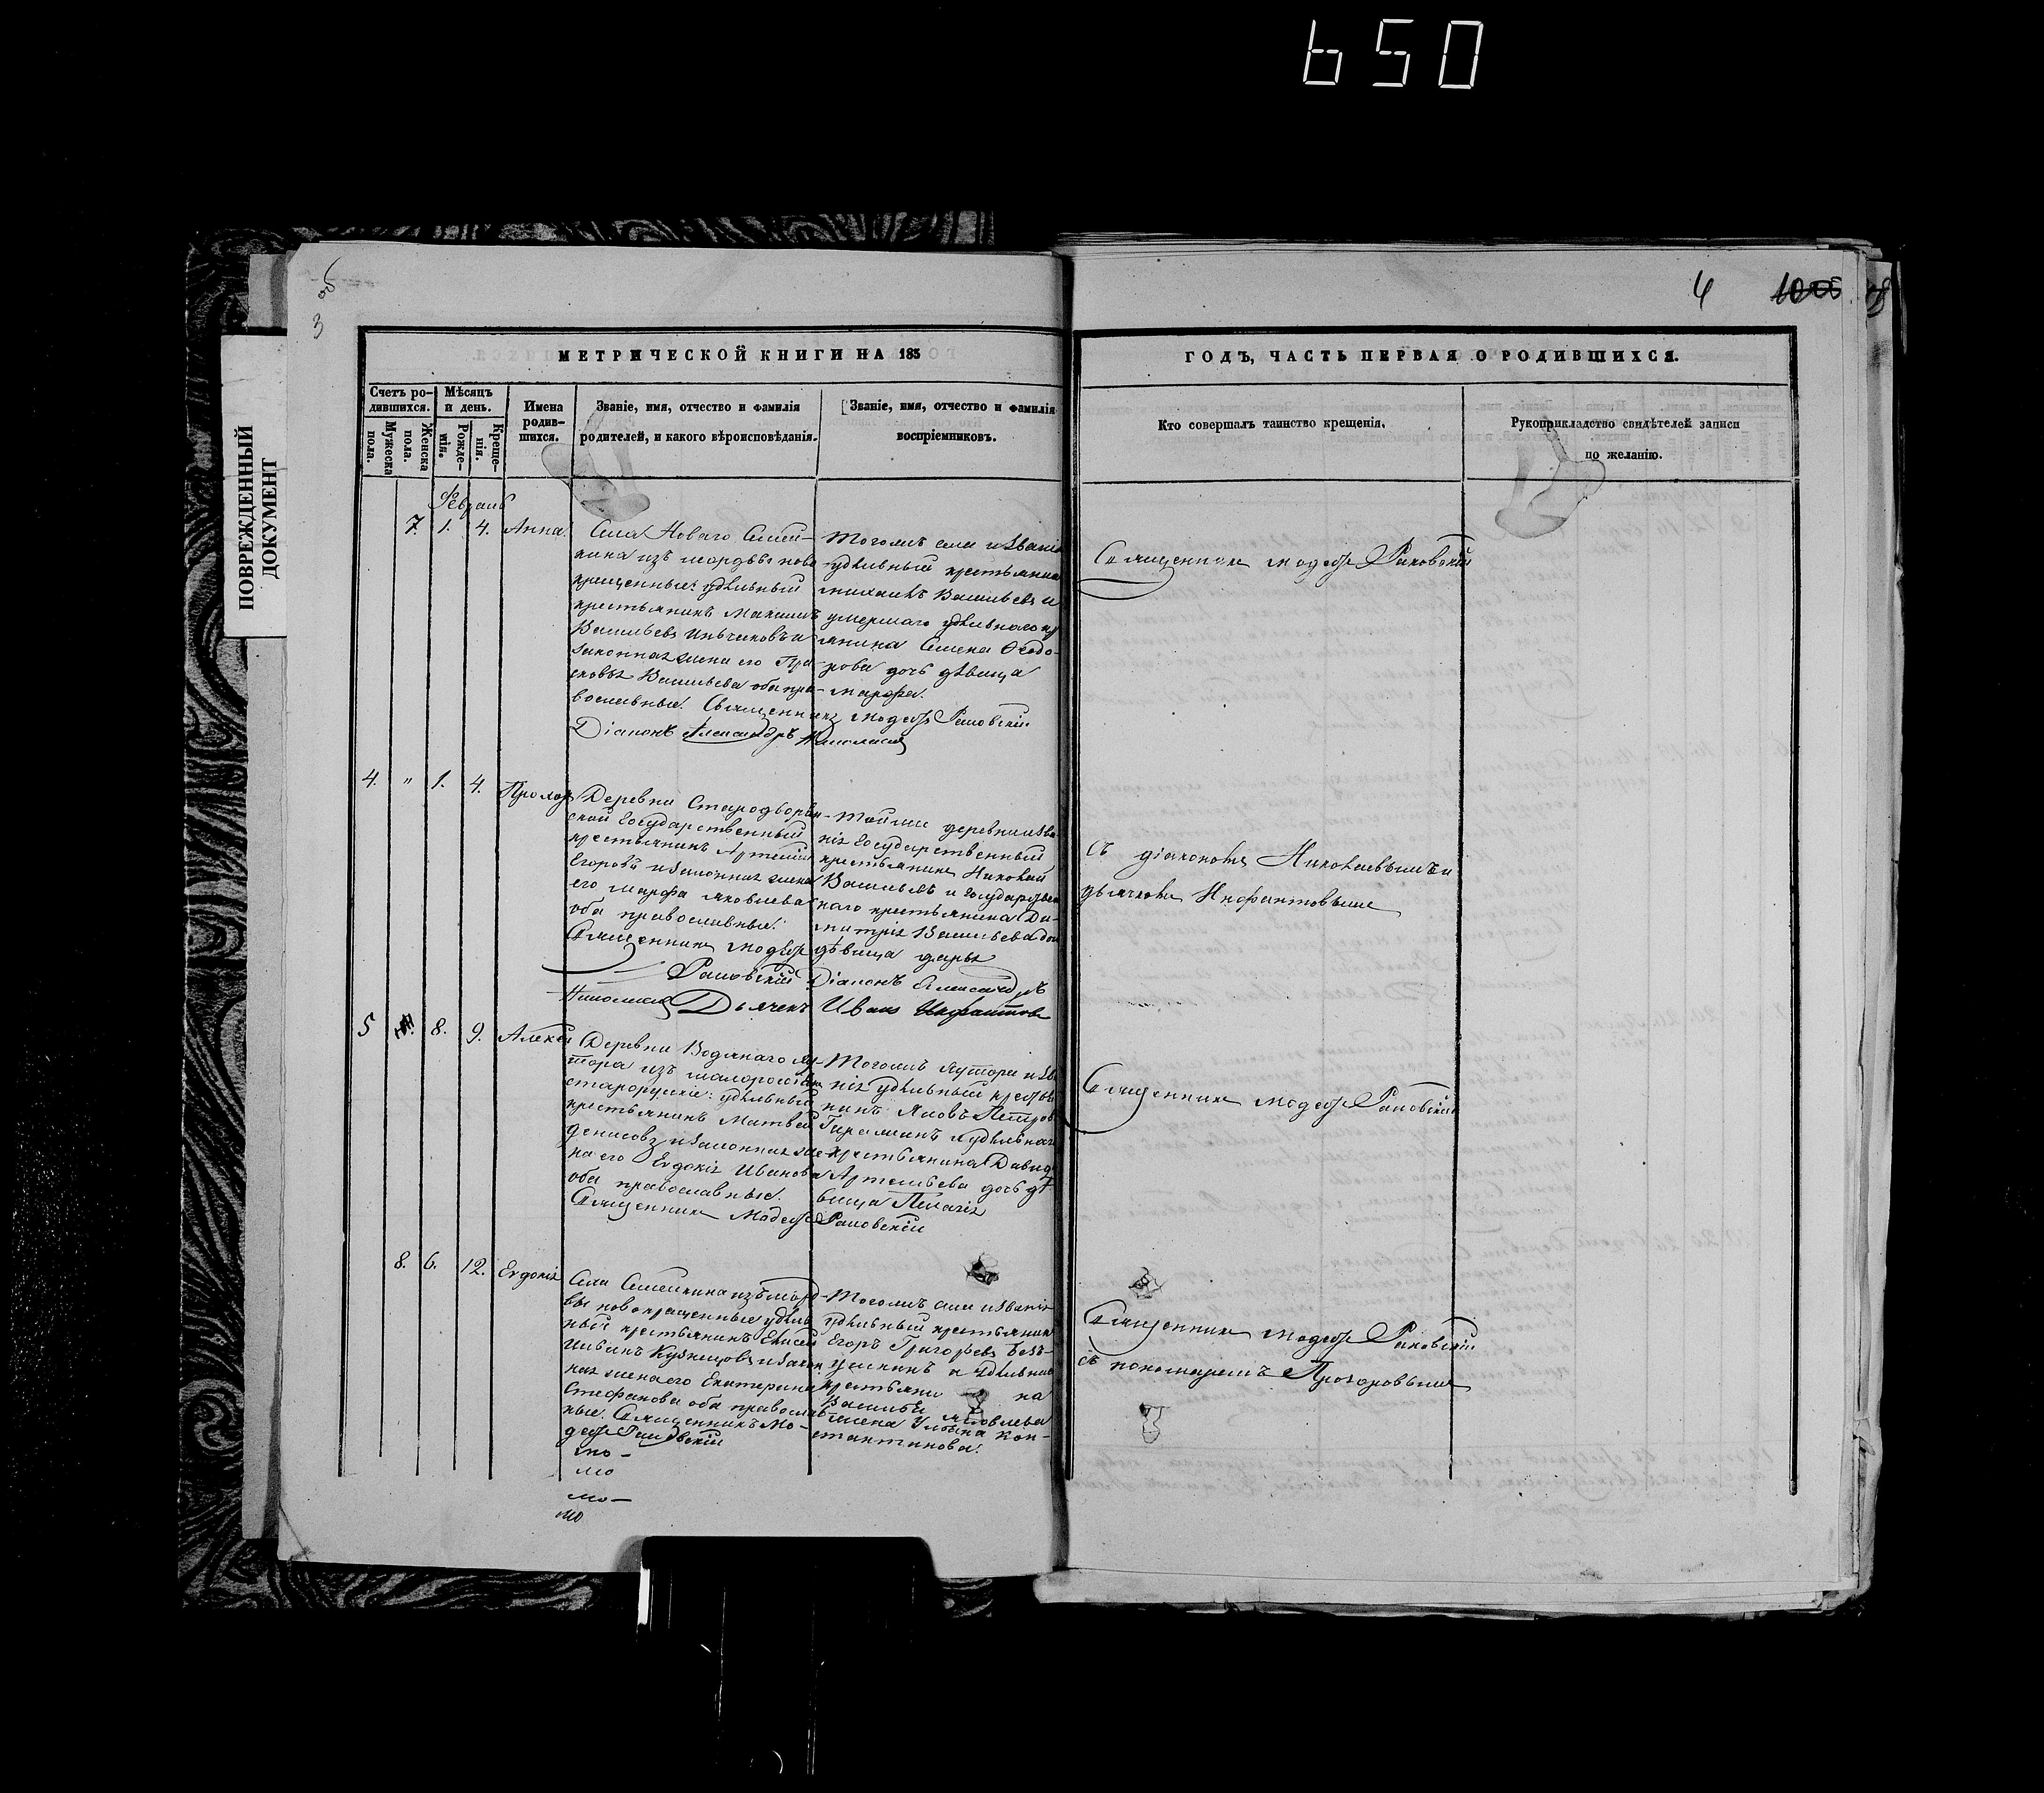 650
ПОВРЕЖДЕННЫЙ
ДОКУМЕНТ
3
4
МЕТРИЧЕСКОЙ КНИГИ НА 185
ГОДЪ, ЧАСТЬ ПЕРВАЯ О РОДИВШИХСЯ.
Счетъ ро-
дившихся.
Мужеска
пола.
Женска
пола.
Мѣсяцъ
и день.
Рожде-
нія.
Креще-
нія.
Имена
родив-
шихся.
Званіе, имя, отчество и фамилія
родителей, и какого вѣроисповѣданія.
Званіе, имя, отчество и фамилія
воспріемниковъ.
Кто совершалъ таинство крещенія.
Рукоприкладство свидѣтелей записи
по желанію.
7. 1. 4. Анна.
Села Новаго Семей-
кина изъ мордвы ново
крещенные: удѣльный
крестьянинъ Максимъ
Васильевъ и
законная жена его Пра-
сковья Васильева оба пра-
вославные. Священникъ Модестъ Раковскій
Діаконъ Александръ Николаевъ
Тогожъ села и званія
удѣльный крестьянинъ
Михаилъ Васильевъ и
умершаго удѣльнаго кр
янина Семена Ѳеодо-
рова дочь дѣвица
Марфа.
Священникъ Модестъ Раковскій
4. " 1. 4. Прохоръ
Деревни Стародворян-
ской Государственный
крестьянинъ Артемій
Егоровъ и законная жена
его Марфа Яковлева
оба православные.
Священникъ Модестъ
Раковскій Діаконъ Александръ
Николаевъ Дьячекъ Иванъ Инфантовъ
Тойже деревни и зва-
нія Государственный
крестьянинъ Николай
Васильевъ и Государствен
наго крестьянина Ди-
митрія Васильева доч
дѣвица Дарья
съ діакономъ Николаевымъ и
дьячкомъ Инфантовымъ
5 8. 9. Алексій
Деревни Водянаго Ху-
тора изъ малороссіянъ
старорусскіе: удѣльный
крестьянинъ Матвей
Денисовъ и законная же-
на его Евдокія Иванова
оба православные.
Священникъ Модестъ Раковскій
Тогожъ Хутора и зва
нія удѣльный крестья
нинъ Яковъ Петровъ
и удѣльнаго
крестьянина Давида
Артемьева дочь дѣ-
вица Пелагія
Священникъ Модестъ Раковскій
8. 6. 12. Евдокія
Села Семейкина изъ морд-
вы новокрещенные удѣль
ный крестьянинъ Елисей
Кузнецовъ и закон
ная жена его Екатерина
Стефанова оба православ
ные. Священникъ Мо-
дестъ Раковскій
Тогожъ села и званія
удѣльный крестьянинъ
Егоръ Григорьевъ
и удѣльнаго
крестьяни на
Василья Яковлева
жена Ульяна Кон-
стантинова.
Священникъ Модестъ Раковскій
съ пономаремъ Прозоровымъ
мо-
мо
мо-
мо